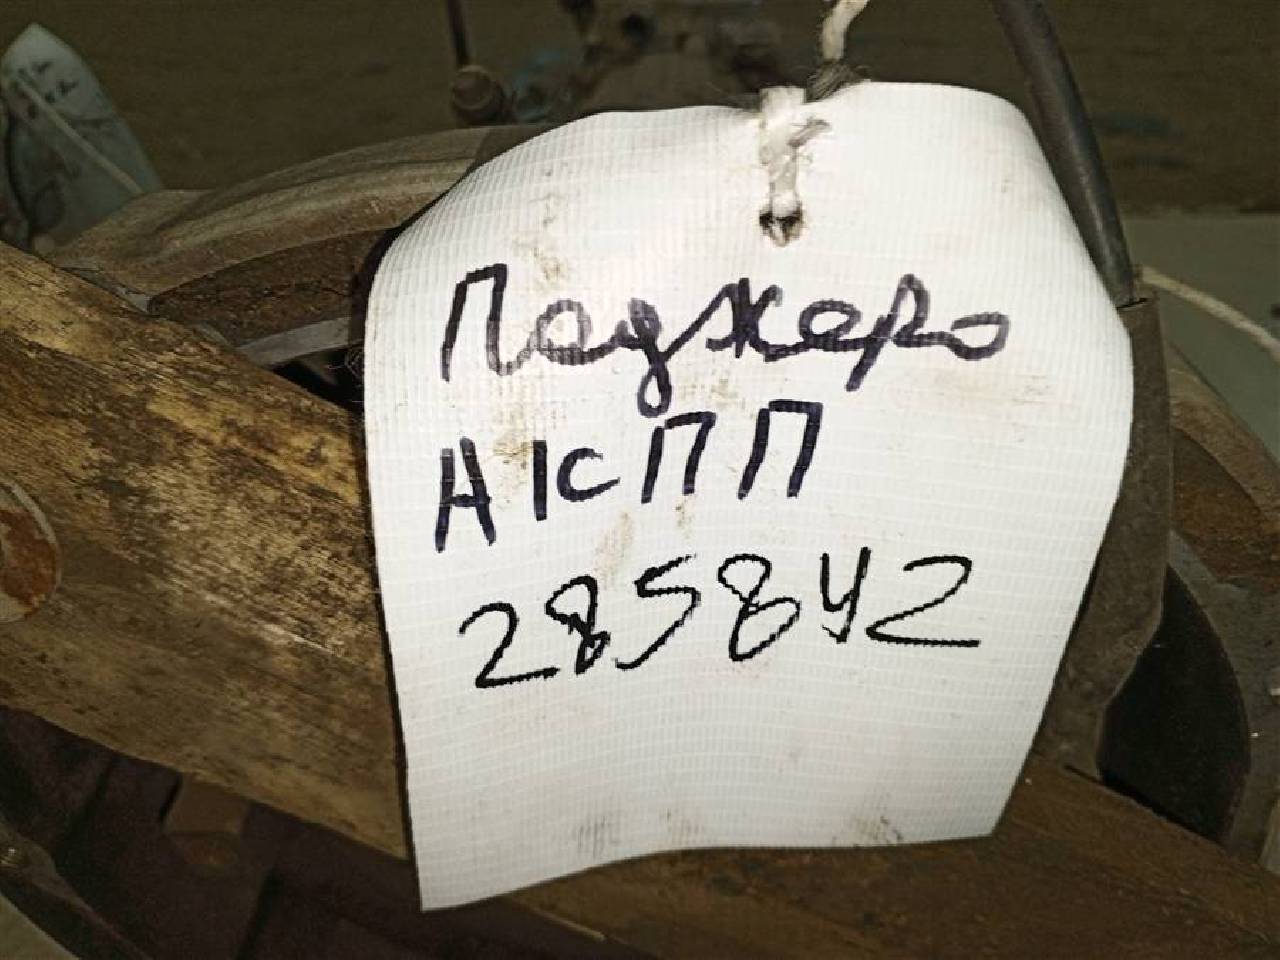 Паджеро
АКПП
285842